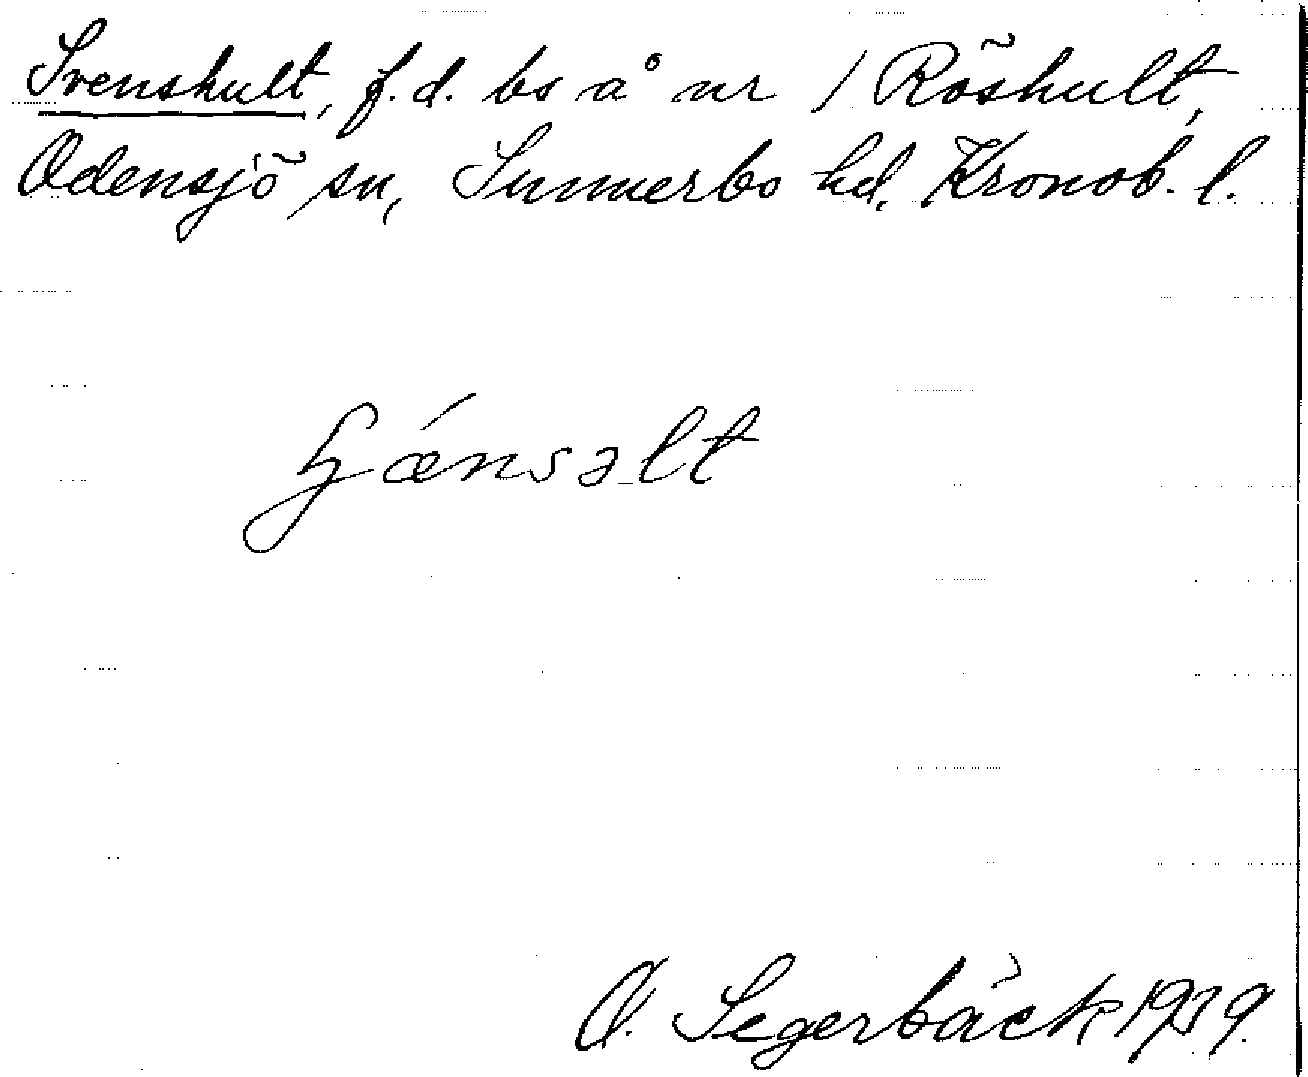 Svenshult, f.d. bs å nr 1 Röshult,
Odensjö sn, Sunnerbo hd, Kronob. l.
O. Segerbäck 1939.